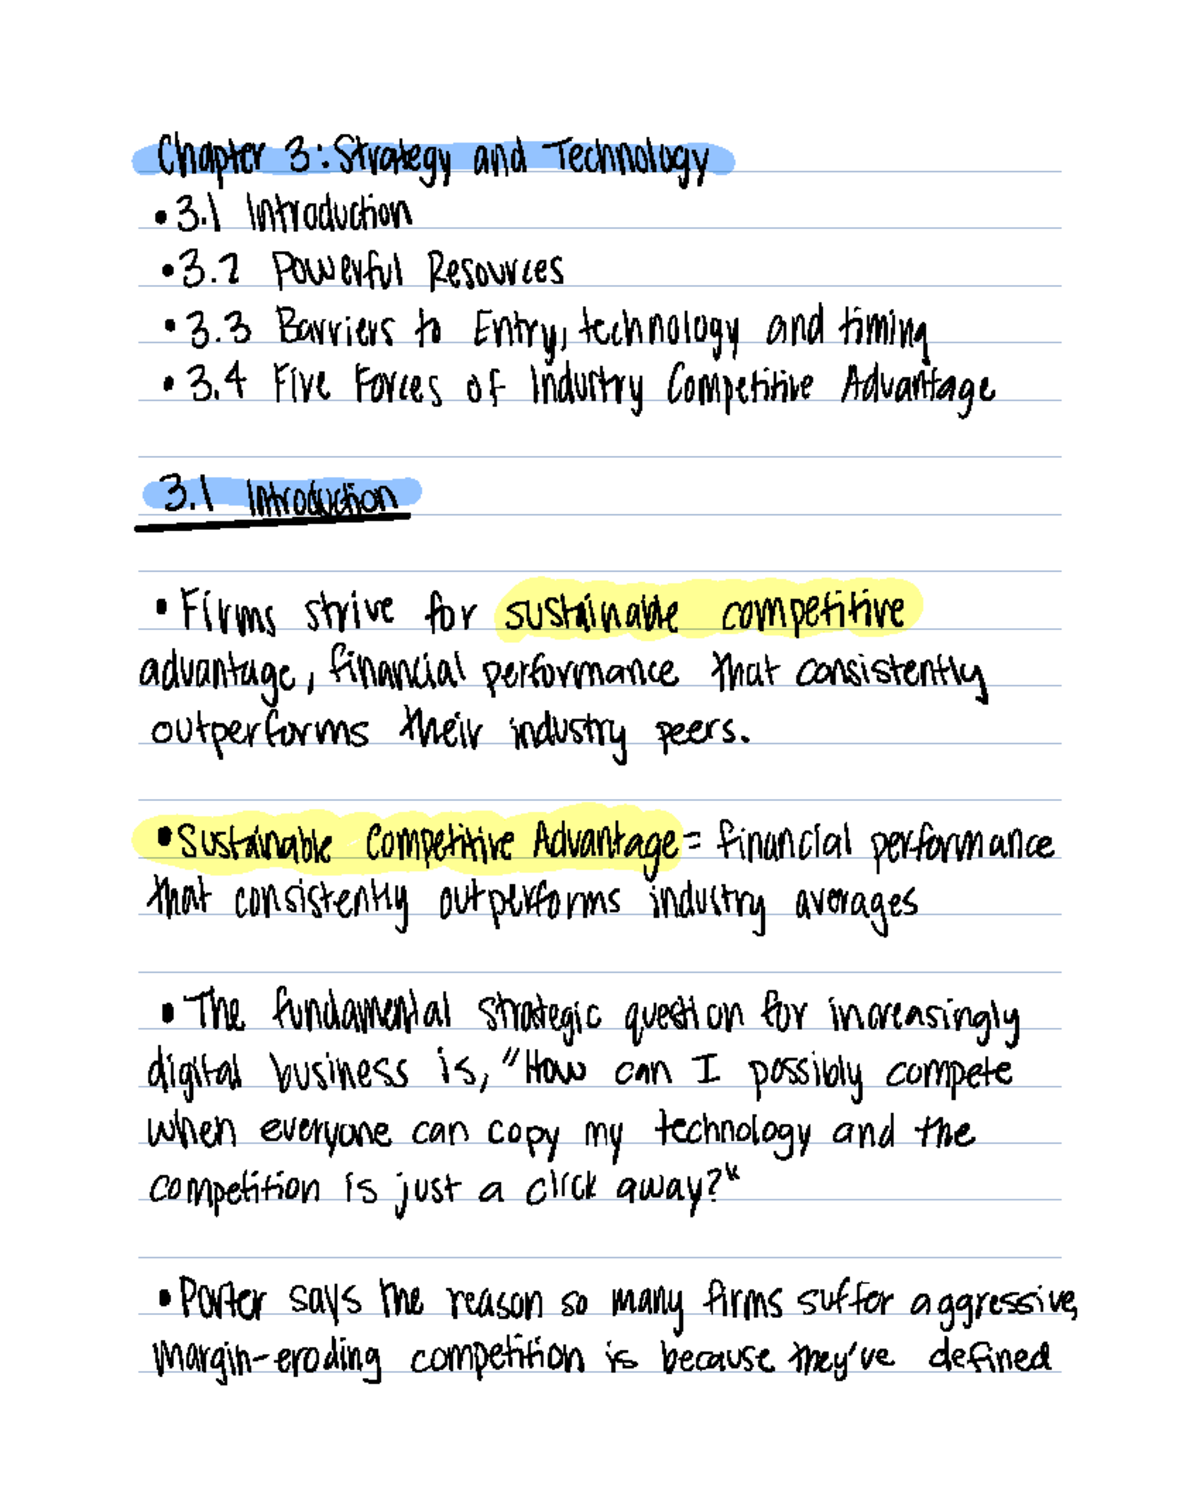 Chapter 3: Strategy and Technology
• 3.1 Introduction
• 3.2 Powerful Resources
• 3.3 Barriers to Entry, technology and timing
• 3.4 Five Forces of Industry Competitive Advantage
3.1 Introduction
• Firms strive for sustainable competitive
advantage, financial performance that consistently
outperforms their industry peers.
• Sustainable Competitive Advantage = financial performance
that consistently outperforms industry averages
• The fundamental strategic question for increasingly
digital business is, "How can I possibly compete
when everyone can copy my technology and the
competition is just a click away?"
• Porter says the reason so many firms suffer aggressive,
margin-eroding competition is because they've defined